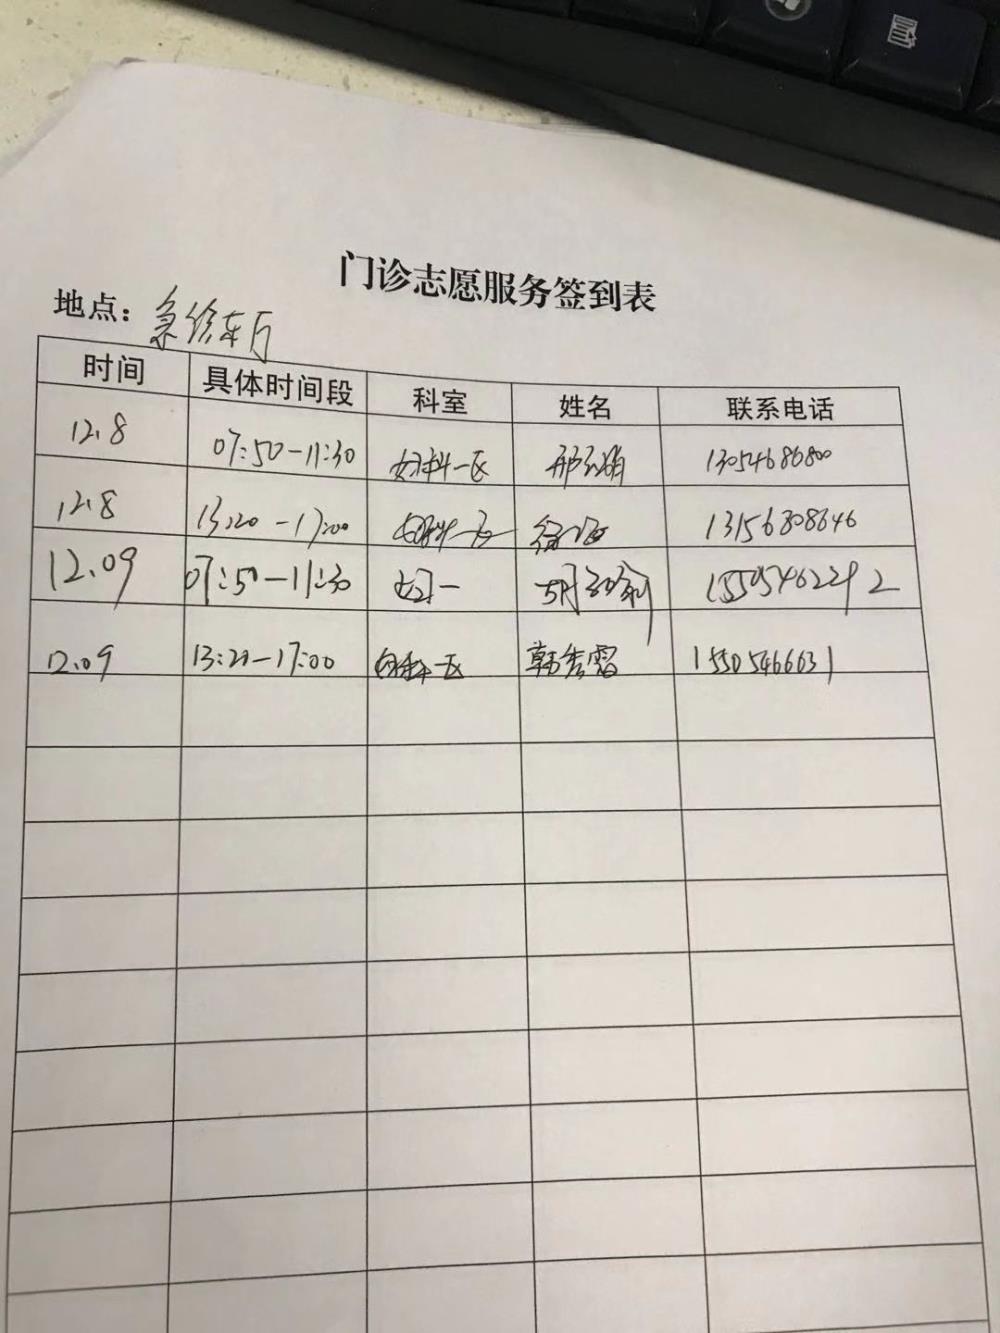 门诊志愿服务签到表
地点：急诊东厅
时间 具体时间段 科室 姓名 联系电话
12.8 07:50-11:30 妇科一区 13054686800
12.8 13:20-17:00 妇科一区 13156808646
12.09 07:50-11:30 妇一 15505462292
12.09 13:20-17:00 妇科一区 韩秀霞 15505466631